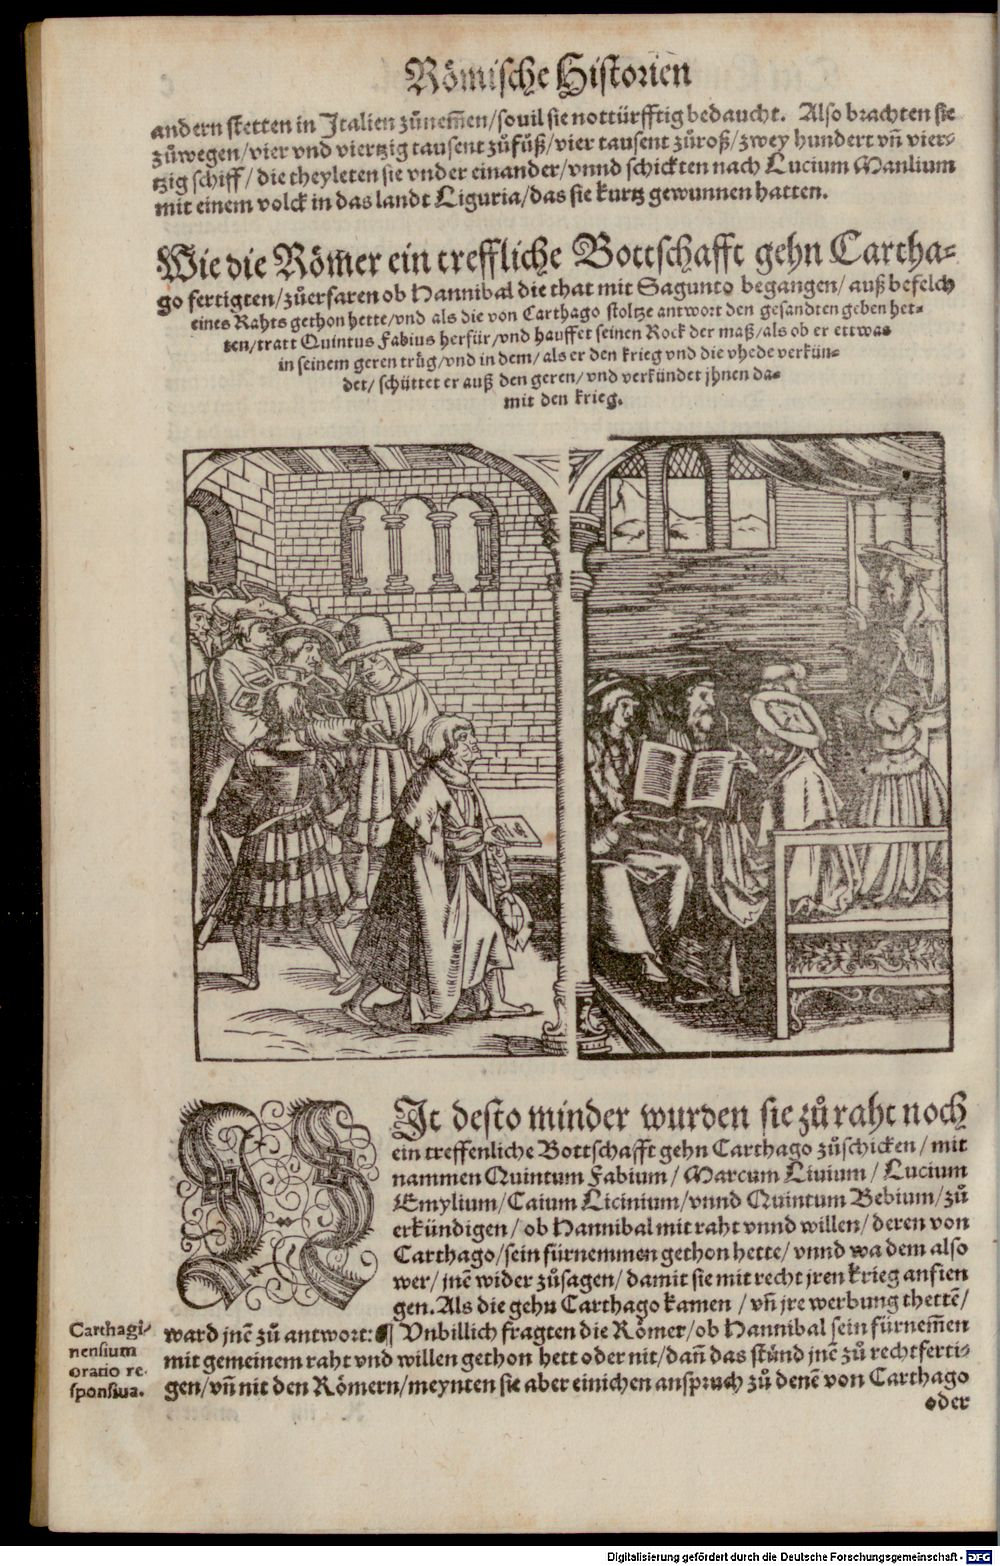 Römische Historien
andern stetten in Italien zůnem̃en/souil sie nottürfftig bedaucht. Also brachten sie
zůwegen/vier vnd viertzig tausent zůfůß/vier tausent zůroß/zwey hundert vñ vier-
tzig schiff/ die theyleten sie vnder einander/vnnd schickten nach Lucium Manlium
mit einem volck in das landt Liguria/das sie kurtz gewunnen hatten.
Wie die Römer ein treffliche Bottschafft gehn Cartha-
go fertigten/zůerfaren ob Hannibal die that mit Sagunto begangen/ auß befelch
eines Rahts gethon hette/vnd als die von Carthago stoltze antwort den gesandten geben het-
ten/tratt Quintus Fabius herfür/vnd hauffet seinen Rock der maß/als ob er ettwas
in seinem geren trůg/vnd in dem/als er den krieg vnd die vhede verkün-
det/ schüttet er auß den geren/ vnd verkündet jhnen da-
mit den krieg.
NIt desto minder wurden sie zů raht noch
ein treffenliche Bottschafft gehn Carthago zůschicken/ mit
nammen Quintum Fabium/ Marcum Liuium/ Lucium
Emylium/Caium Licinium/vnnd Quintum Bebium/zů
erkündigen/ ob Hannibal mit raht vnnd willen/deren von
Carthago/sein fürnemmen gethon hette/vnnd wa dem also
wer/jnē wider zůsagen/damit sie mit recht jren krieg anfien
gen. Als die gehn Carthago kamen /vñ jre werbung thettē/
ward jnē zů antwort: ¶ Vnbillich fragten die Römer/ob Hannibal sein fürnem̃en
mit gemeinem raht vnd willen gethon hett oder nit/dañ das stůnd jnē zů rechtferti-
gen/vñ nit den Römern/meynten sie aber einichen anspruch zů denē von Carthago
oder
Carthagi-
nensium
oratio re-
sponsiua.
Digitalisierung gefördert durch die Deutsche Forschungsgemeinschaft - DFG